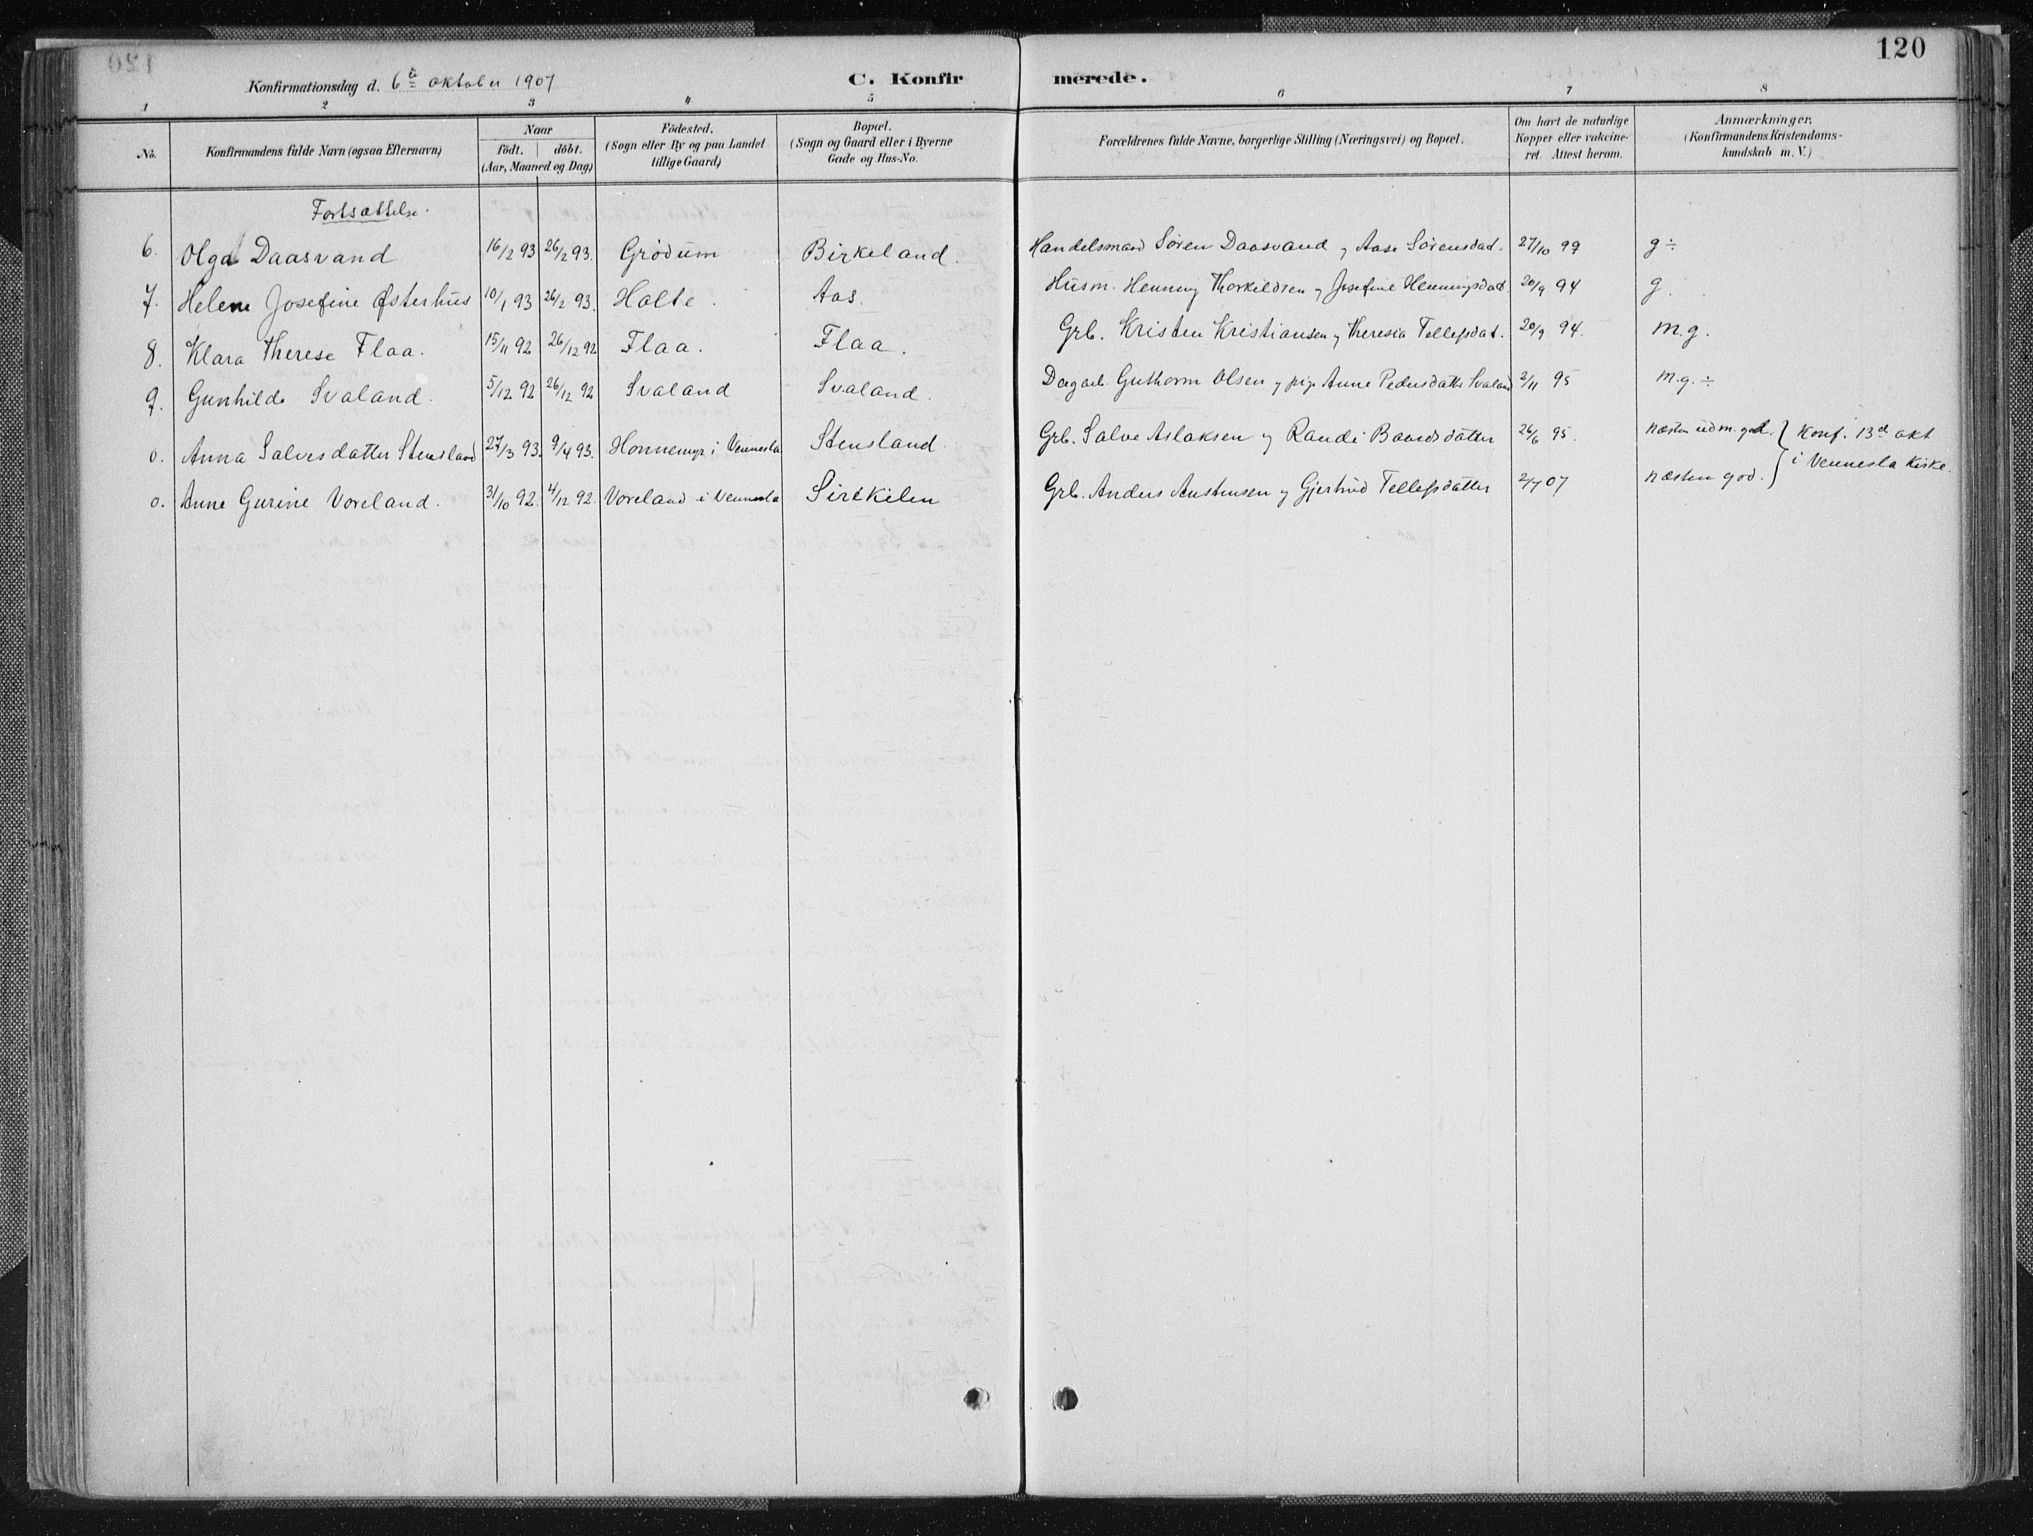 120
Konfirmationsdag d. 6te oktober 1907
C. Konfirmerede.
1 2 3 4 5 6 7 8
No. Konfirmandens fulde Navn (ogsaa Efternavn) Naar födt. döbt. (Aar, Maaned og Dag) Födested. (Sogn eller By og paa Landet tillige Gaard) Bopæl. (Sogn og Gaard eller i Byerne Gade og Hus-No. Forældrenes fulde Navne, borgerlige Stilling (Næringsvei) og Bopæl. Om havt de naturlige Kopper eller vakcineret. Attest herom. Anmærkninger, (Konfirmandens Kristendomskundskab m. V.)
Fortsættelse.
6. Olga Daasvand 16/2 93 26/2 93. Grödum Birkeland. Handelsmand Sören Daasvand og Aase Sörensdat. 27/10 99 g ÷
7. Helene Josefine Østerhus 10/1 93 26/2 93. Holte. Aas. Husm. Henning Thorkildsen og Josefine Henningsdat. 20/9 94 g.
8. Klara Therese Flaa. 15/11 92 26/12 92 Flaa. Flaa. Grb. Kristen Kristiansen og Theresia Tellefsdat. 20/9 94 m.g.
9. Gunhilde Svaland. 5/12 92 26/12 92 Svaland Svaland. Dagarb. Guthorm Olsen og pige Anne Pedersdatter Svaland 2/11 95 m.g. ÷
o. Anna Salvesdatter Stensland 27/3 93. 9/4 93. Honnemyr i Vennesla Stensland Grb. Salve Aslaksen og Randi Baardsdatter 26/6 95. næsten udm. god. } Konf. 13de okt
o. Anne Gurine Voreland. 31/10 92. 4/12 92. Voreland i Vennesla Sirekilen Grb. Anders Austensen og Gjertrud Tellefsdatter 2/7 07 næsten god. } i Vennesla Kirke.